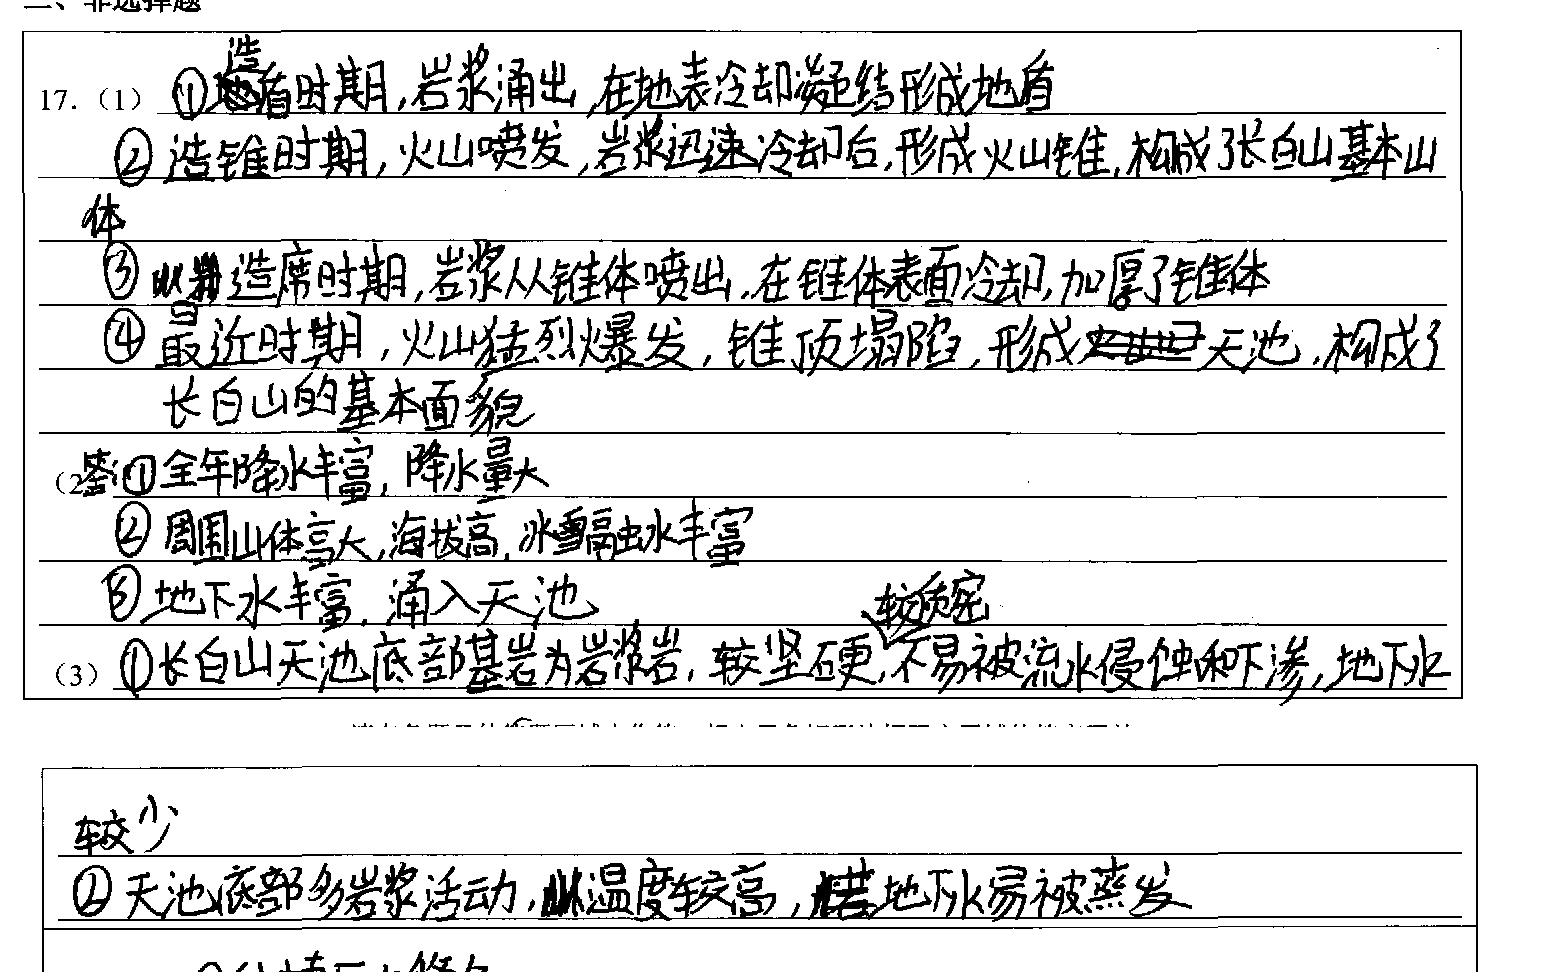 二、非选择题
17.（1）①造盾时期,岩浆涌出,在地表冷却凝结形成地盾
②造锥时期,火山喷发,岩浆迅速冷却后,形成火山锥,构成了长白山基本山
体
③造席时期,岩浆从锥体喷出,在锥体表面冷却,加厚了锥体
④最近时期,火山猛烈爆发,锥顶塌陷,形成天池,构成了
长白山的基本面貌
（2 答:①全年降水丰富,降水量大
②周围山体高大,海拔高,冰雪融水丰富
③地下水丰富,涌入天池
较质密
（3）①长白山天池底部基岩为岩浆岩,较坚硬,不易被流水侵蚀和下渗,地下水
较少
②天池底部多岩浆活动,温度较高,地下水易被蒸发